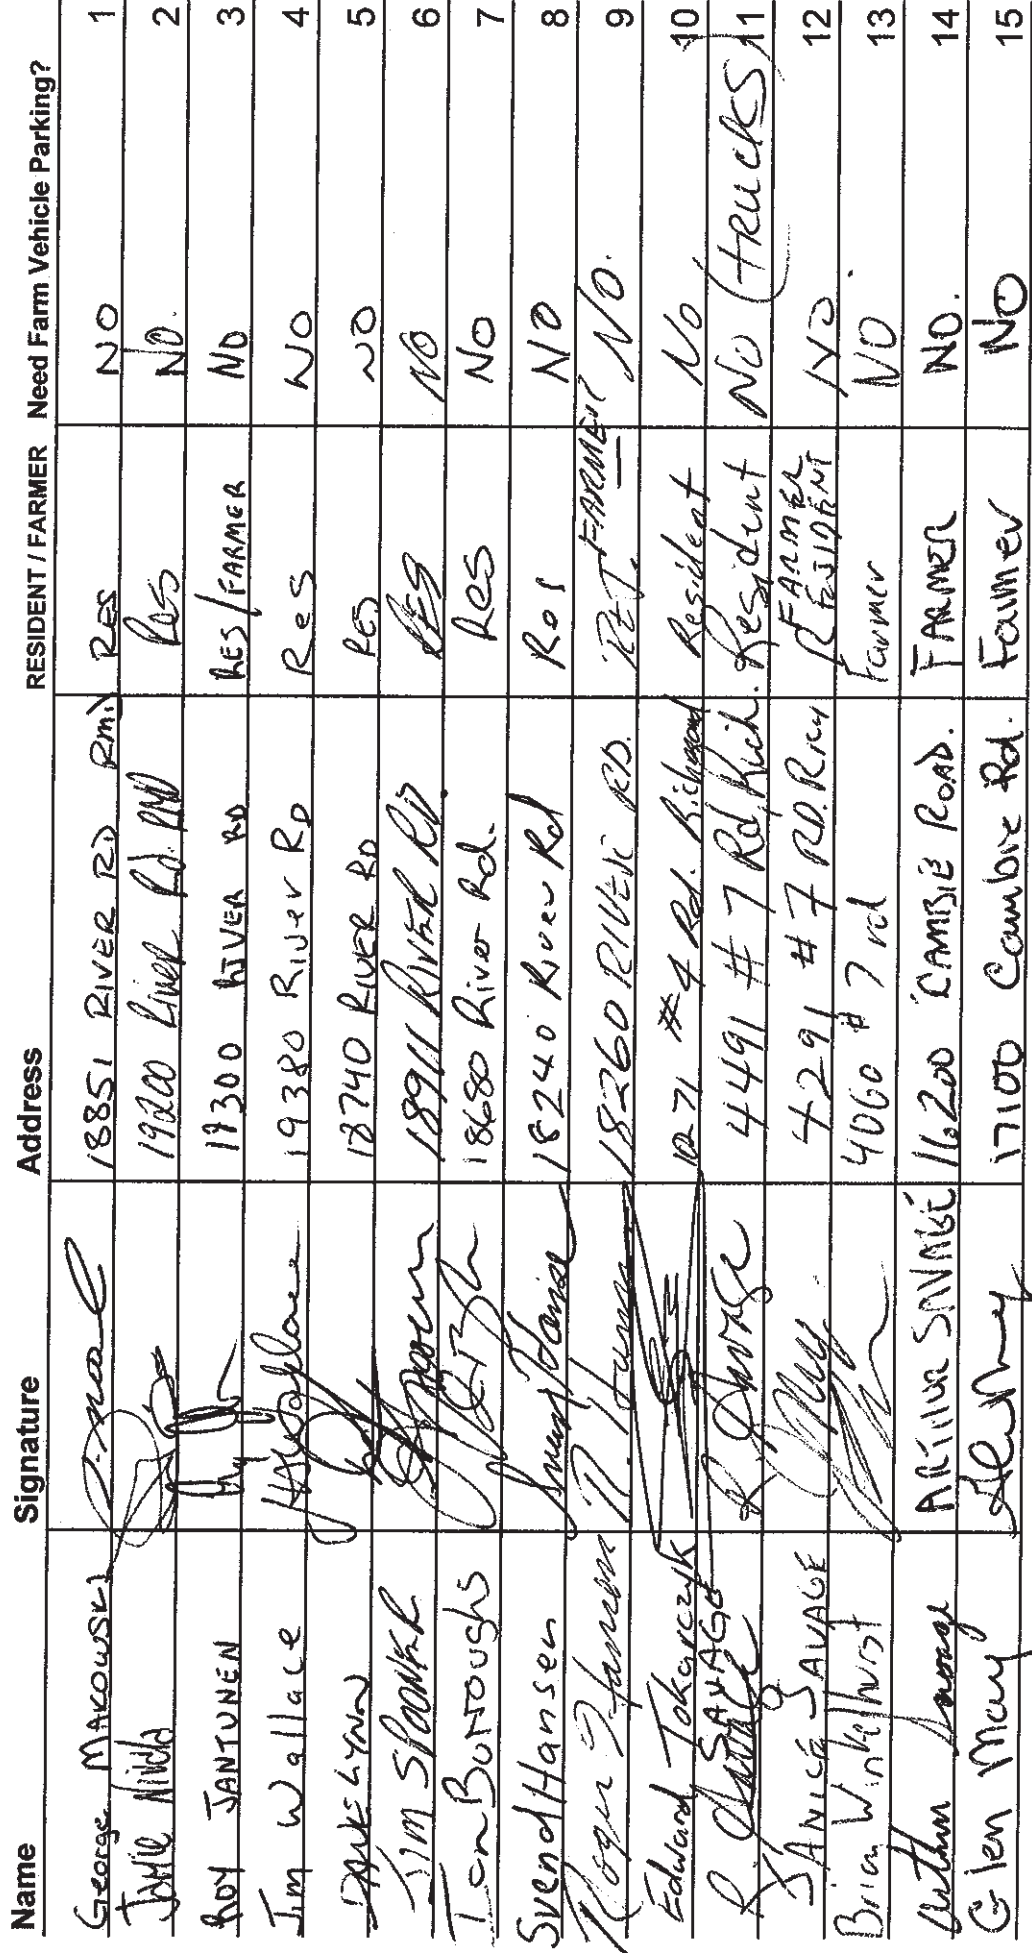 Name Signature Address RESIDENT / FARMER Need Farm Vehicle Parking?
George MAKOWSKI 18851 RIVER RD Rmd RES NO 1
JAMIE 19200 River Rd. RMD Res NO. 2
ROY JANTUNEN 17300 RIVER RD RES/FARMER NO 3
Jim Wallace 19380 RiveR RD Res NO 4
DAVE LYNN 18740 RIVER RD RES NO 5
JIM SPOONER 18911 RIVER RD RES NO 6
Ian Burroughs 18680 River Rd. Res No 7
Svend Hansen Svend Hansen 18240 River Rd Res NO 8
Roger Hansen R. Hansen 18260 RIVER RD. RET. FARMER NO. 9
Edward Tokarczyk 10271 #4 Rd. Richmond Resident No 10
R SAVAGE R Savage 4491 #7 Rd, Rich. Resident No (trucks) 11
JANICE SAVAGE 4291 #7 RD. Rich FARMER RESIDENT NO 12
Brian Winkelhurst 4060 #7 rd Farmer NO 13
Arthur Savage ARTHUR SAVAGE 16200 CAMBIE ROAD. FARMER NO. 14
Glen May 17100 Cambie Rd. Farmer NO 15